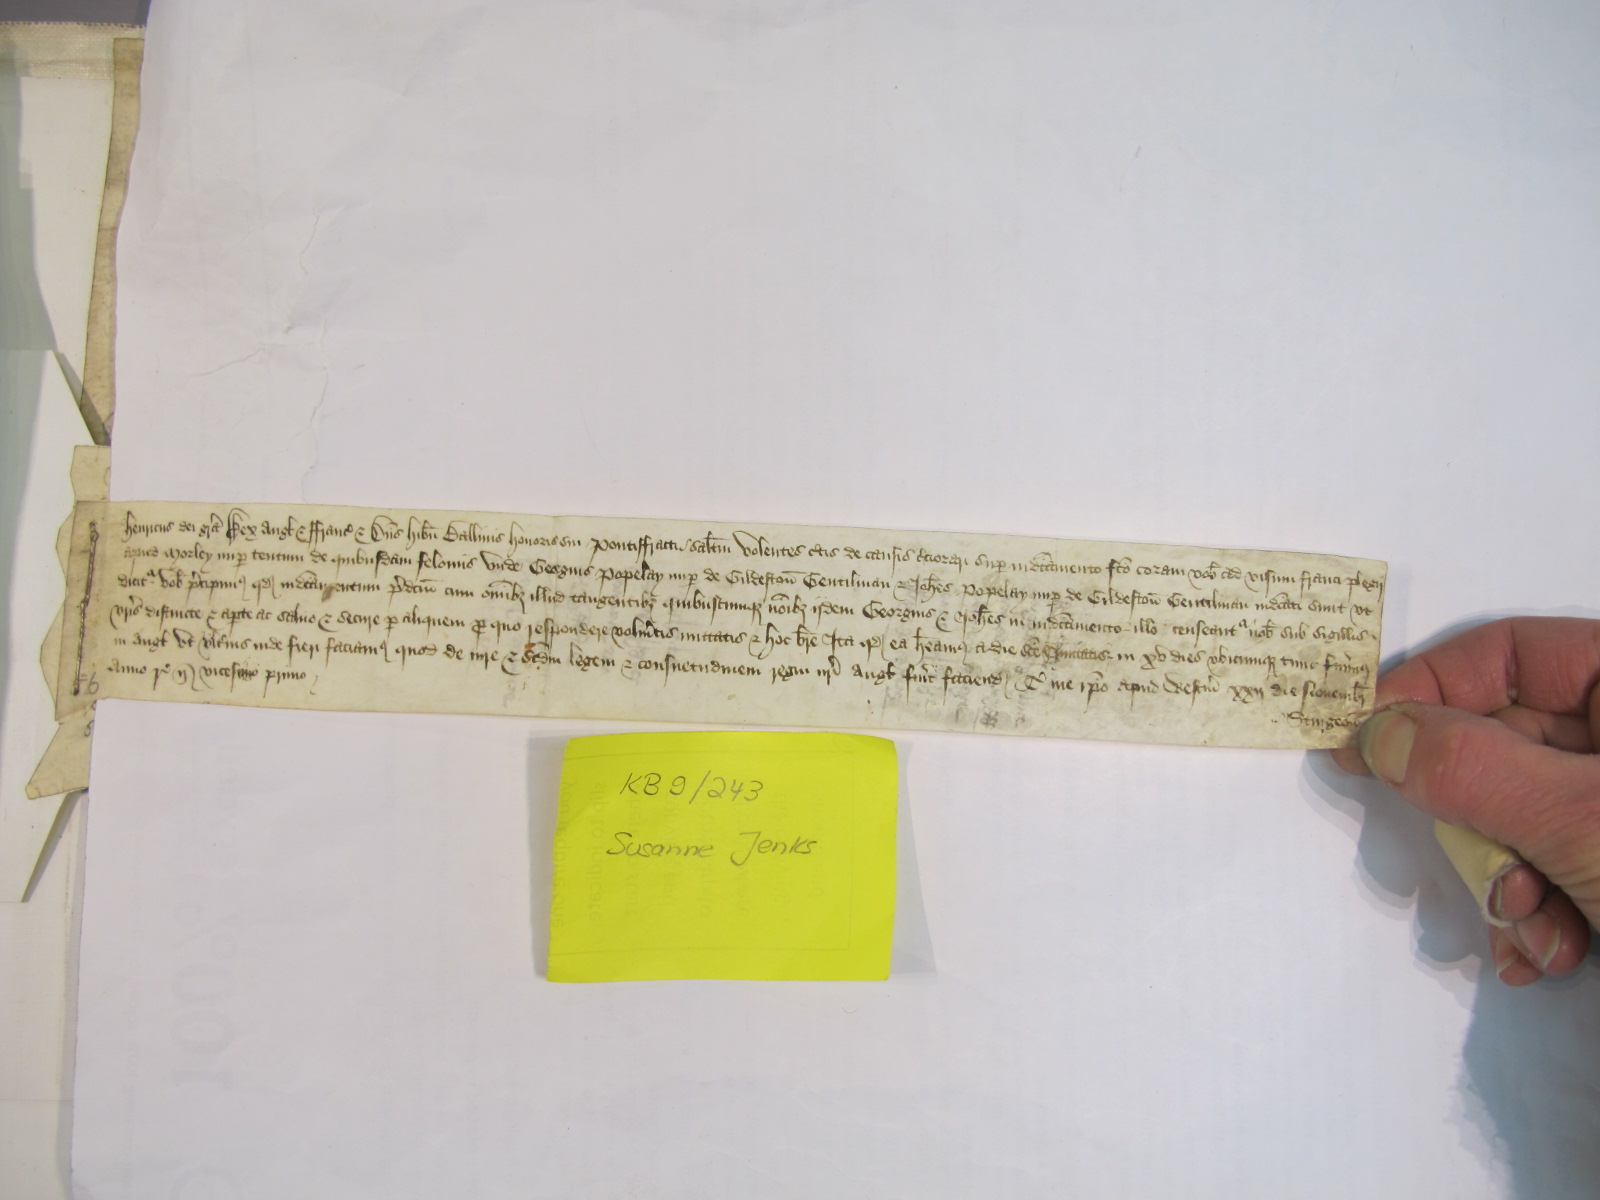 Henricus dei gr̃a Rex Angł & Ffranc̃ & Dñs Hib̃n Ballivis honoris sui Pontisfracti sal̃tm volentes c̃tis de causis c̃ciorari sup indc̃amento fc̃o coram vob̃ ad visum franci pleg̃ii
apud Morley nup tentum de quibusdam feloniis unde Georgius Popelay nup de Gildeston̄ Gentilman & Joh̃es Popelay nup de Gildeston̄ Gentilman indc̃ati sunt ut
dicit᷑ vob̃ p̃cipimus qd indc̃amentum p̃dc̃um cum om̃ibz illud tangentibz quibuscumqz nõibz ijdem Georgius & Joh̃es in indc̃amento illo censeant᷑ nob̃ sub sigillis
vr̃is distincte & apte ac salvo & secure p aliquem p quo respondere volu̾itis mittatis & hoc br̃e Ita qd ea h̃eamus a die in xv dies ubicumqz tunc fu̾imus
in Angł Ut ulterius inde fieri faciamus quod de iure & scd̃m legem & consuetudinem regni nr̃i Angł fu̾it faciend T me ip̃o apud Westm̃ xxij die Novembr̃
Anno r n vicesimo primo
Sturgeon
KB 9/243
Susanne Jenks